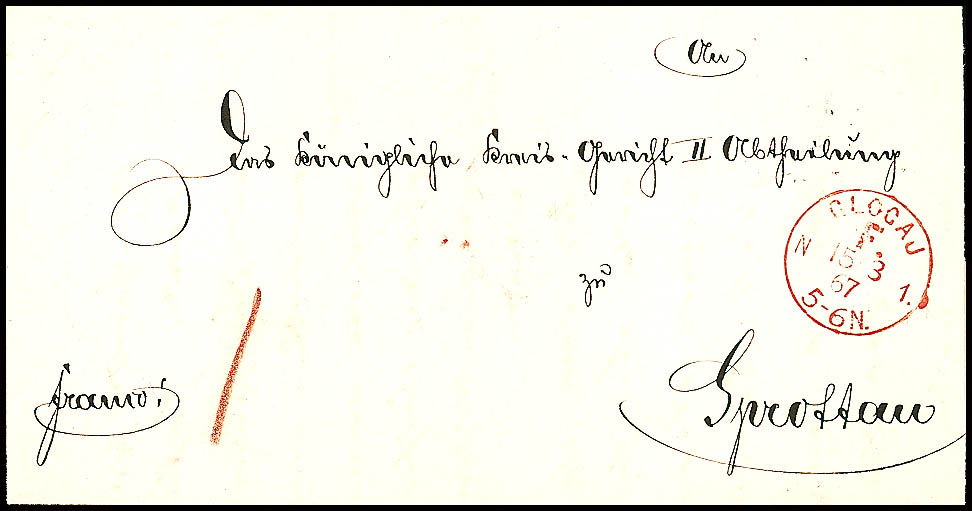 An
Das Königliche Kreis-Gericht II Abtheilung
zu
Sprottau
franco!
GLOGAU
N 1.
15 3
67
5-6N.